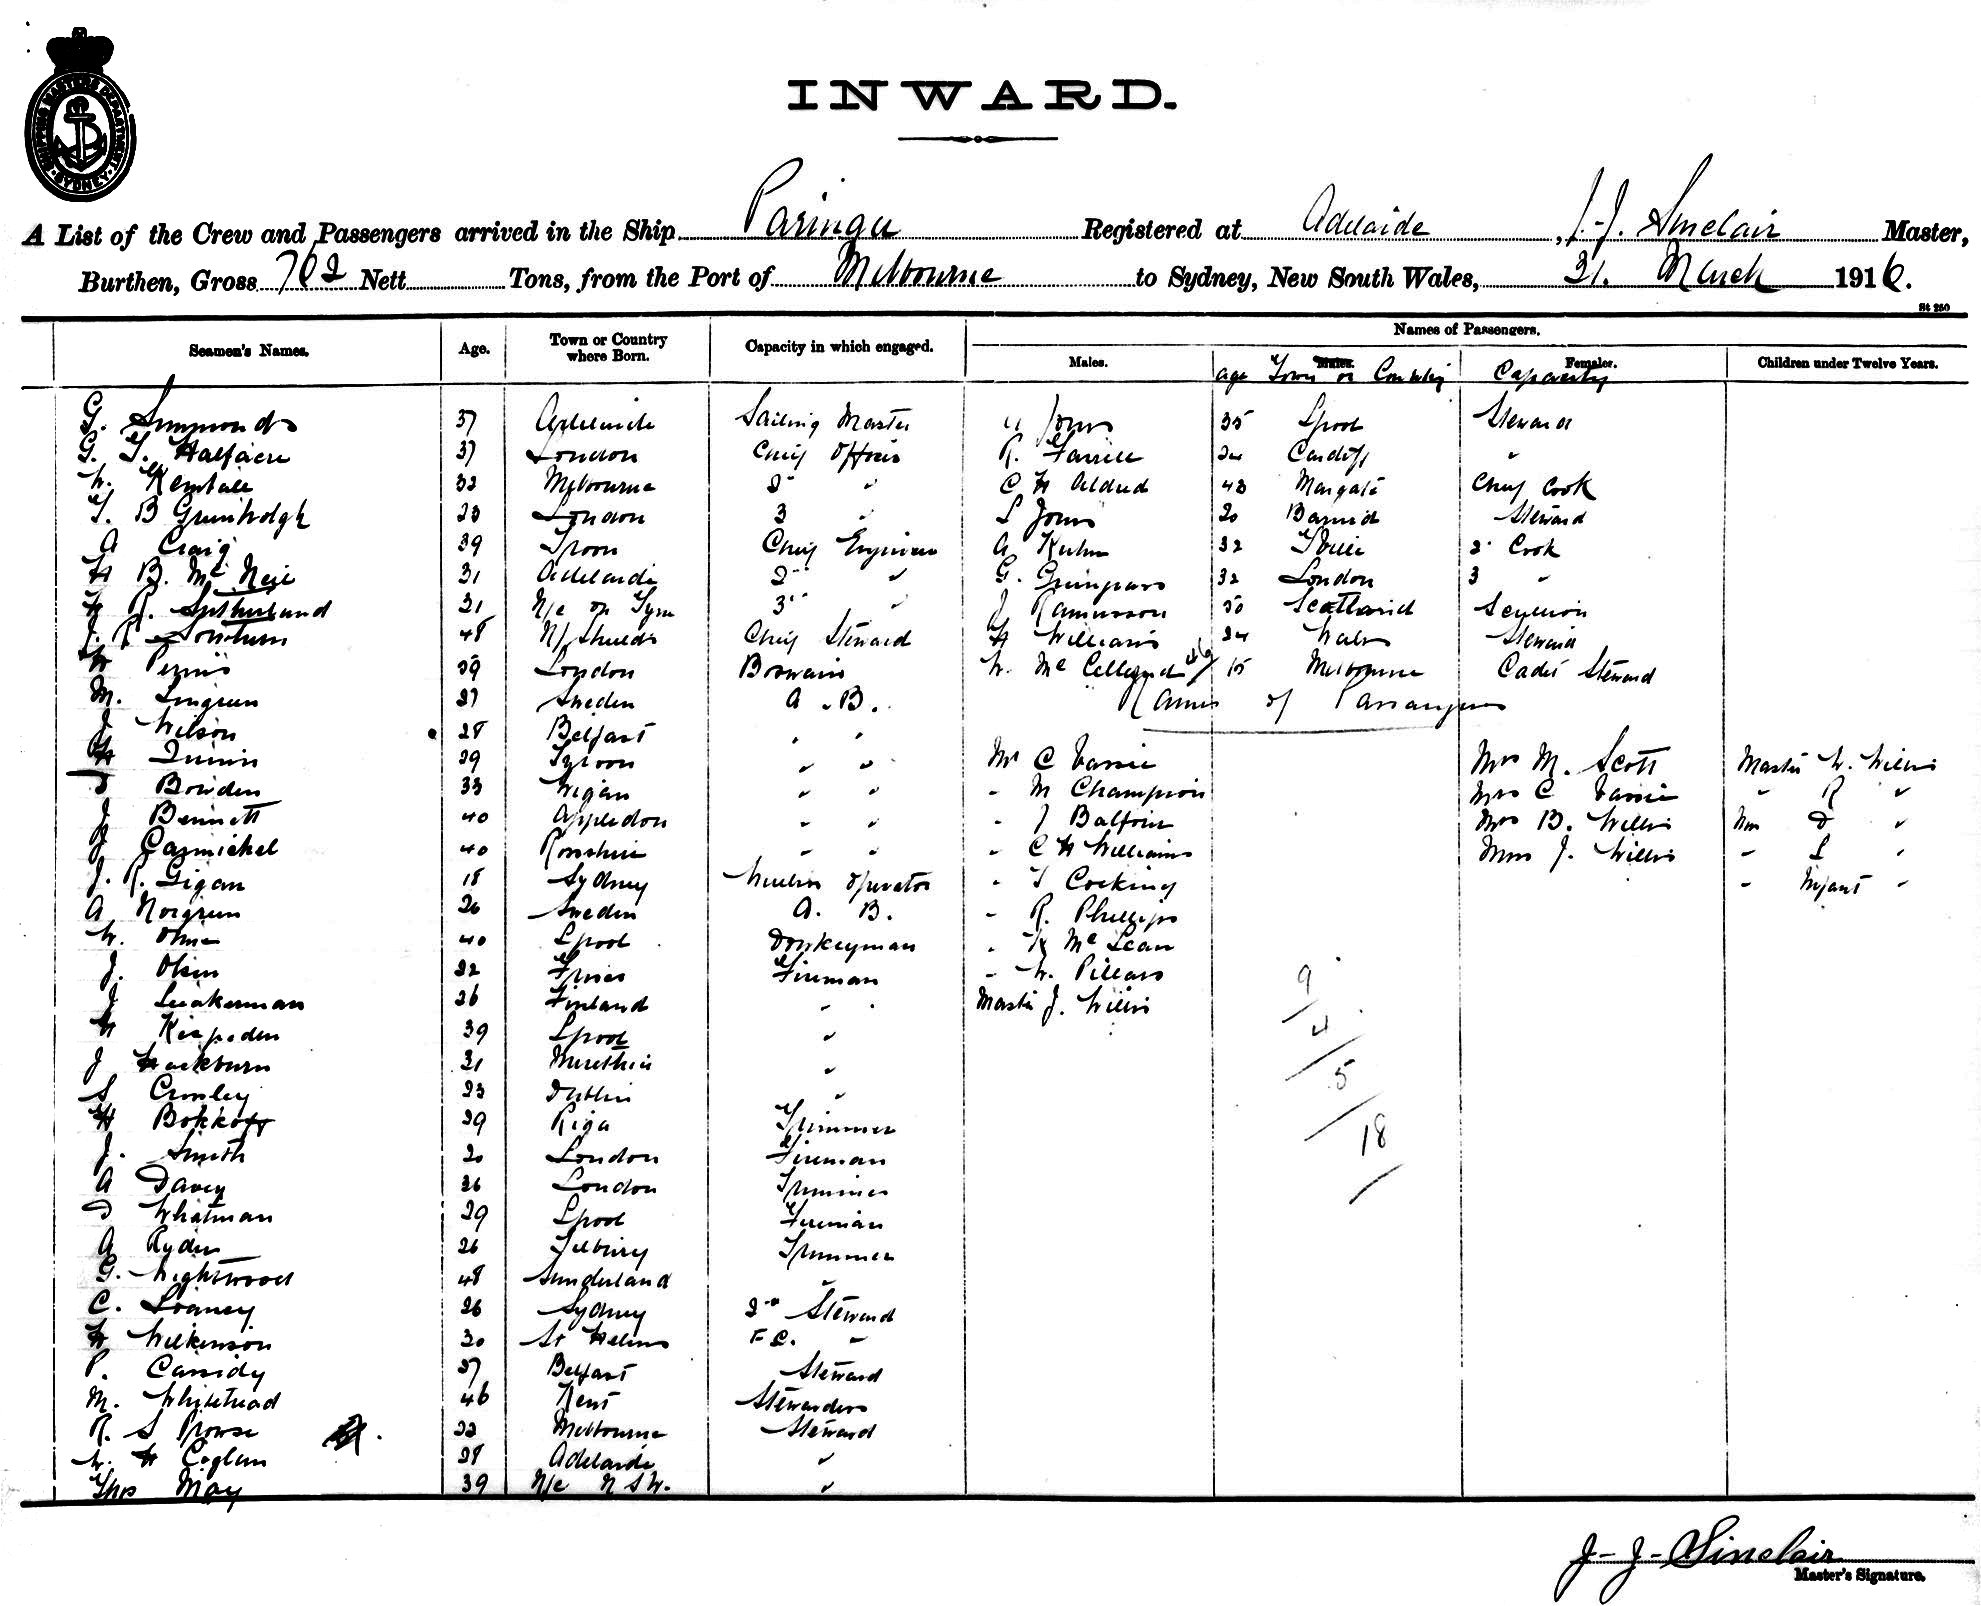 SHIPPING MASTERS DEPARTMENT
SYDNEY
INWARD.
A List of the Crew and Passengers arrived in the Ship Paringa Registered at Adelaide, J.J. Sinclair Master,
Burthen, Gross 702 Nett Tons, from the Port of Melbourne to Sydney, New South Wales, 31. March 1916.
St 250
Names of Passengers.
Seamen's Names. Age. Town or Country where Born. Capacity in which engaged. Males. Females. Children under Twelve Years.
age Town or Country Capacity
G. Simmonds 37 Adelaide Sailing Master Jones 35 Lpool Steward
G. T. Halfacre 37 London Chief Officer R. 24 Cardiff "
W. Kendall 32 Melbourne 2 " C H Aldred 43 Margate Chief Cook
T. B 23 London 3 " L Jones 20 Steward
A Craig 39 Troon Chief Engineer A Kuhn 32 2 Cook
H B. McNeil 31 Adelaide 2 " G. 32 London 3 "
R. Sutherland 31 N/c on Tyne 3 " J 50 Scotland
J. R 48 N/Shields Chief Steward H Williams 24 Wales Steward
W 39 London Boswain W. Mc 15 Melbourne Cadet Steward
M. Lingren 27 Sweden A.B. Names of Passengers
J Wilson 28 Belfast " "
H Quinn 29 " " Mr C Vassie Mrs M. Scott Master W. Willis
Bowden 33 Wigan " " " M Champion Mrs C Vassie " R "
J Bennett 40 Appledon " " " J Balfour Mrs B. Willis D "
J Carmichel 40 Rosshire " " " C H Williams Miss J. Willis " L "
J. R. Gigan 18 Sydney Wireless Operator " T Cocking " Infant "
A Norgren 26 Sweden A. B. " R. Phillips
W. 40 Lpool Donkeyman " McLean
J. Olsen 22 Fireman " W. Pillars
J 26 Finland " " Master J. Willis
39 Lpool "
J Hackburn 31 "
S Crowley 23 Dublin "
H Bokkoff 29 Riga Trimmer
J. Smith 20 London Fireman
A Davey 26 London Trimmer
D Whatman 29 Lpool Fireman
A Ryder 26 Tilbury Trimmer
G. Wightwood 48 Sunderland "
C. Loaney 26 Sydney 2nd Steward
H Wilkinson 30 St Helens F C. "
P. Cassidy 37 Belfast Steward
M. Whitehead 46 Kent Stewardess
R. S Prowse 22 Melbourne Steward
W. H Coglan 28 Adelaide "
Thos May 39 N/c N S W. "
9
4
5
18
J-J-Sinclair
Master's Signature.